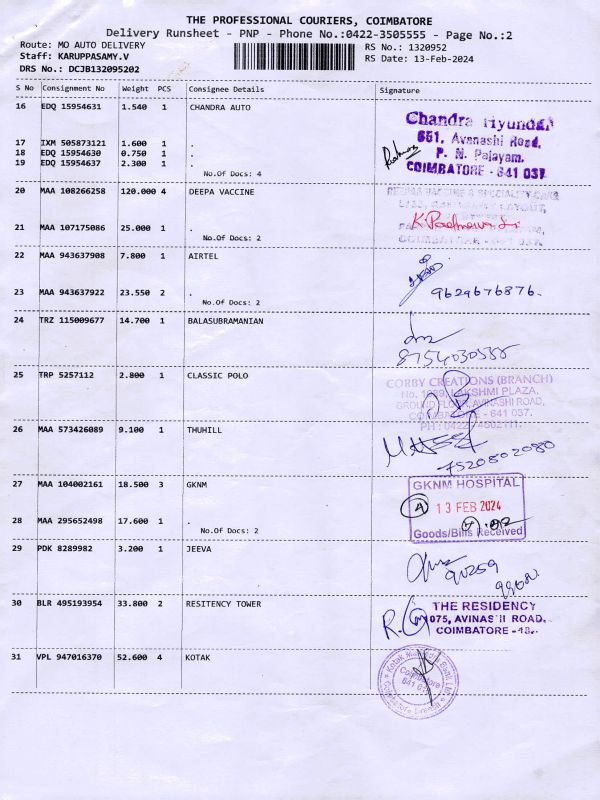 THE PROFESSIONAL COURIERS, COIMBATORE
Delivery Runsheet - PNP - Phone No.:0422-3505555 - Page No.:2
Route: MO AUTO DELIVERY RS No.: 1320952
Staff: KARUPPASAMY.V RS Date: 13-Feb-2024
DRS No.: DCJB132095202
S No Consignment No Weight PCS Consignee Details Signature
16 EDQ 15954631 1.540 1 CHANDRA AUTO
Chandra Hyundai
651, Avanashi Road,
P. N. Palayam,
COIMBATORE - 641 037
17 IXM 505873121 1.600 1 .
18 EDQ 15954630 0.750 1 .
19 EDQ 15954637 2.300 1 .
No.Of Docs: 4
20 MAA 108266258 120.000 4 DEEPA VACCINE
21 MAA 107175086 25.000 1 .
No.Of Docs: 2
22 MAA 943637908 7.800 1 AIRTEL
23 MAA 943637922 23.550 2 .
9629676876.
No.Of Docs: 2
24 TRZ 115009677 14.700 1 BALASUBRAMANIAN
8754030538
25 TRP 5257112 2.800 1 CLASSIC POLO
CORBY CREATIONS (BRANCH)
LAKSHMI PLAZA,
GROUND FLOOR, AVINASHI ROAD,
COIMBATORE - 641 037.
26 MAA 573426089 9.100 1 THUHILL
7520802080
27 MAA 104002161 18.500 3 GKNM
GKNM HOSPITAL
A 13 FEB 2024
Goods/Bills Received
28 MAA 295652498 17.600 1 .
No.Of Docs: 2
29 PDK 8289982 3.200 1 JEEVA
90259
30 BLR 495193954 33.800 2 RESITENCY TOWER
THE RESIDENCY
1075, AVINASHI ROAD,
COIMBATORE -18.
31 VPL 947016370 52.600 4 KOTAK
Kotak Mahindra Bank Ltd
Coimbatore
641 018